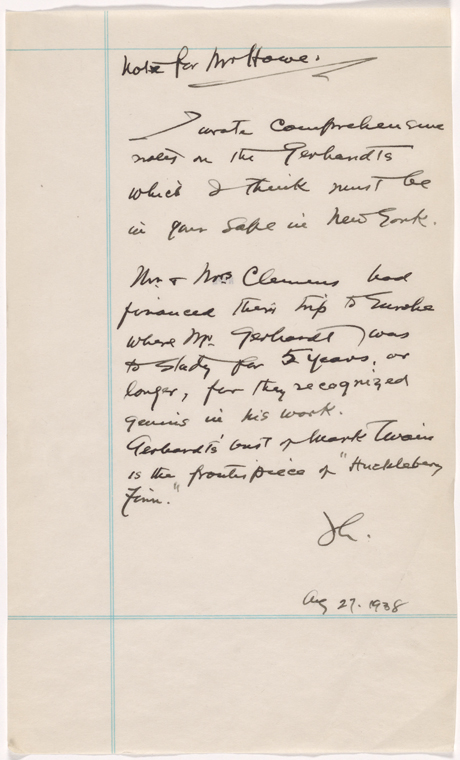 Note for Mr Howe.
I wrote comprehensive
notes on the Gerhardts
which I think must be
in your safe in New York.
Mr. & Mrs Clemens had
financed their trip to Europe
where Mr. Gerhardt was
to study for 5 years, or
longer, for they recognized
genius in his work.
Gerhardts' bust of Mark Twain
is the frontispiece of "Huckleberry
Finn."
Aug 27. 1938